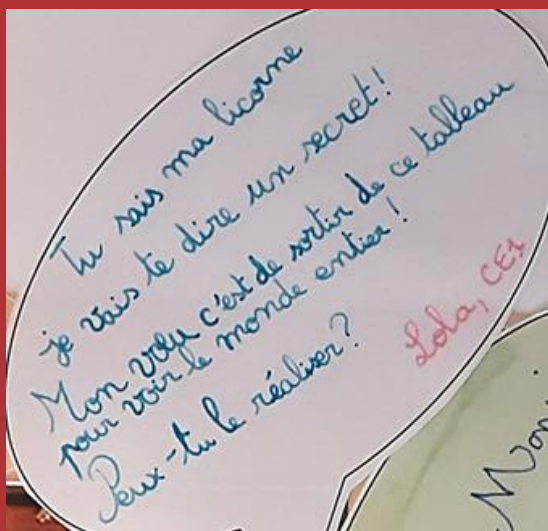 Tu sais ma licorne
je vais te dire un secret!
Mon vœu c'est de sortir de ce tableau
pour voir le monde entier!
Peux-tu le réaliser?
Lola, CE1